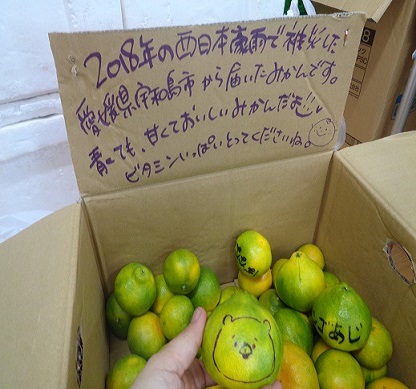 2018年の西日本豪雨で被災した
愛媛県宇和島市から届いたみかんです。
青くても、甘くておいしいみかんだよ!
ビタミンいっぱいとってくださいね。
さぁじ